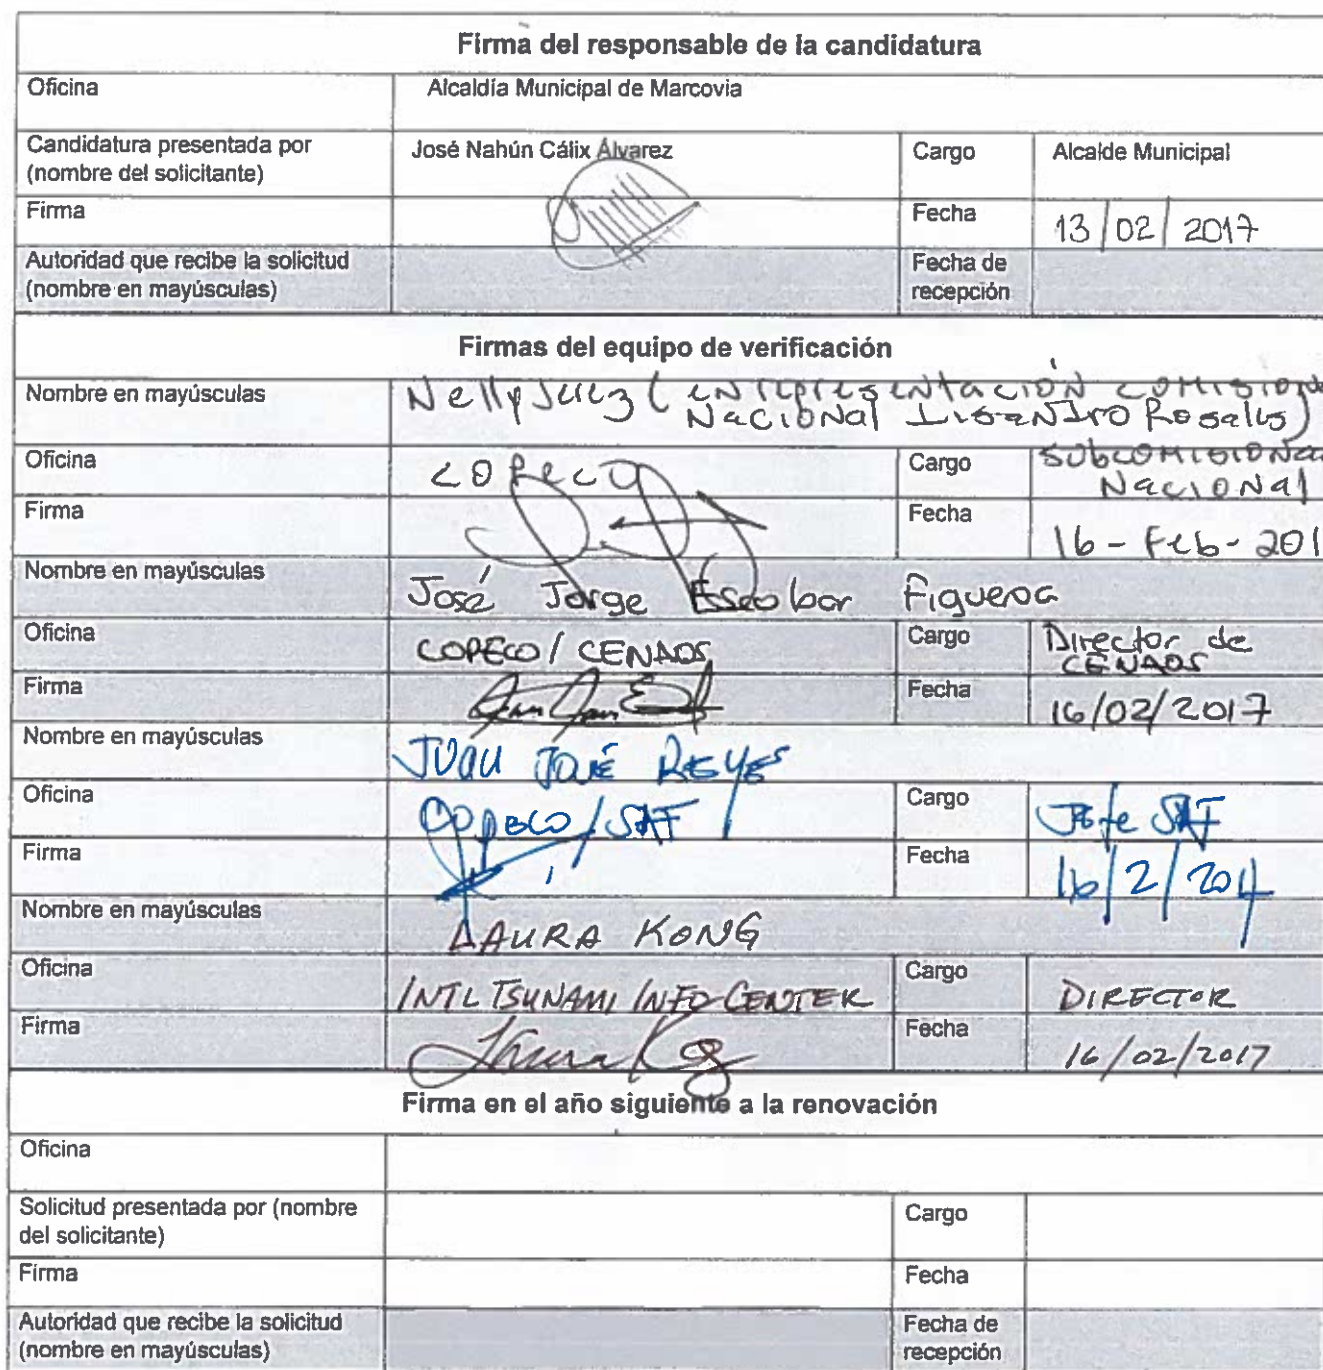 Firma del responsable de la candidatura
Oficina Alcaldía Municipal de Marcovia
Candidatura presentada por
(nombre del solicitante) José Nahún Cálix Álvarez Cargo Alcalde Municipal
Firma Fecha 13/02/2017
Autoridad que recibe la solicitud
(nombre en mayúsculas) Fecha de
recepción
Firmas del equipo de verificación
Nombre en mayúsculas Nelly Jerez (en representación comisiona
Nacional Lisandro Rosales)
Oficina COPECO Cargo Subcomisiona
Nacional
Firma Fecha 16-Feb-201
Nombre en mayúsculas José Jorge Escobar Figueroa
Oficina COPECO/CENAOS Cargo Director de
CENAOS
Firma Fecha 16/02/2017
Nombre en mayúsculas JUAN JOSÉ REYES
Oficina COPECO/SAT Cargo Jefe SAT
Firma Fecha 16/2/2017
Nombre en mayúsculas LAURA KONG
Oficina INTL TSUNAMI INFO CENTER Cargo DIRECTOR
Firma Laura Kong Fecha 16/02/2017
Firma en el año siguiente a la renovación
Oficina
Solicitud presentada por (nombre
del solicitante) Cargo
Firma Fecha
Autoridad que recibe la solicitud
(nombre en mayúsculas) Fecha de
recepción